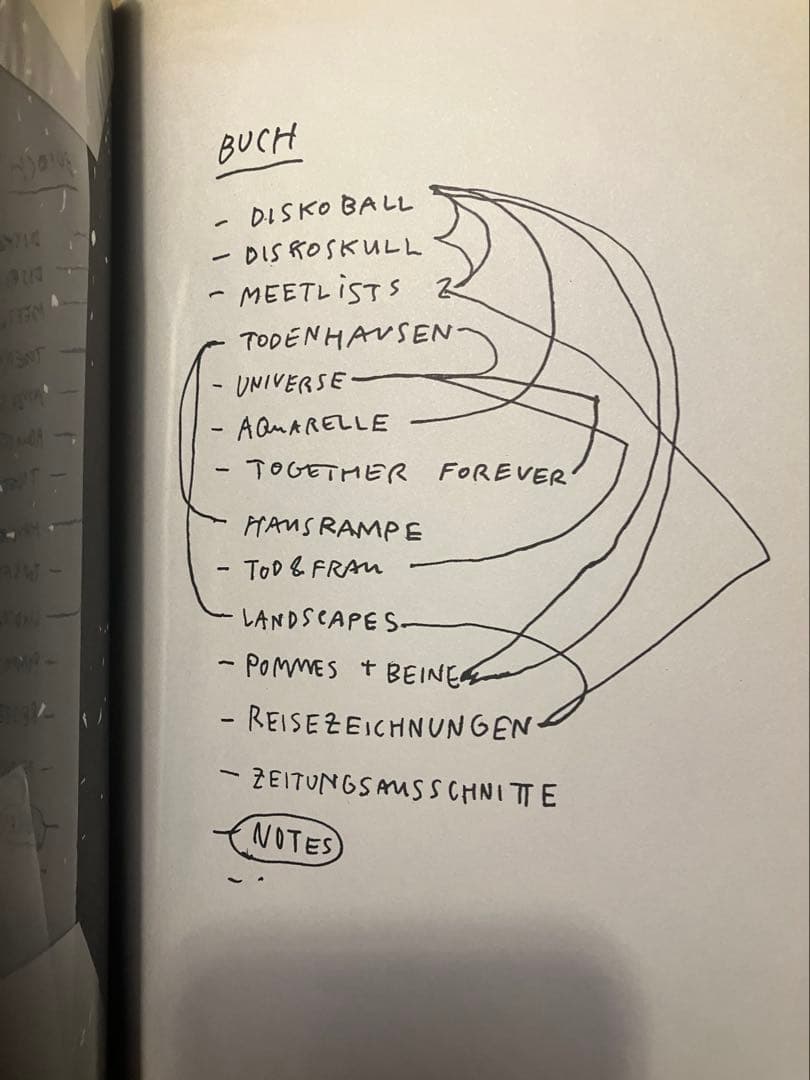 BUCH
- DISKOBALL
- DISKOSKULL
- MEETLISTS
- TODENHAUSEN
- UNIVERSE
- AQUARELLE
- TOGETHER FOREVER
- HAUSRAMPE
- TOD & FRAU
- LANDSCAPES
- POMMES + BEINE
- REISEZEICHNUNGEN
- ZEITUNGSAUSSCHNITTE
- NOTES